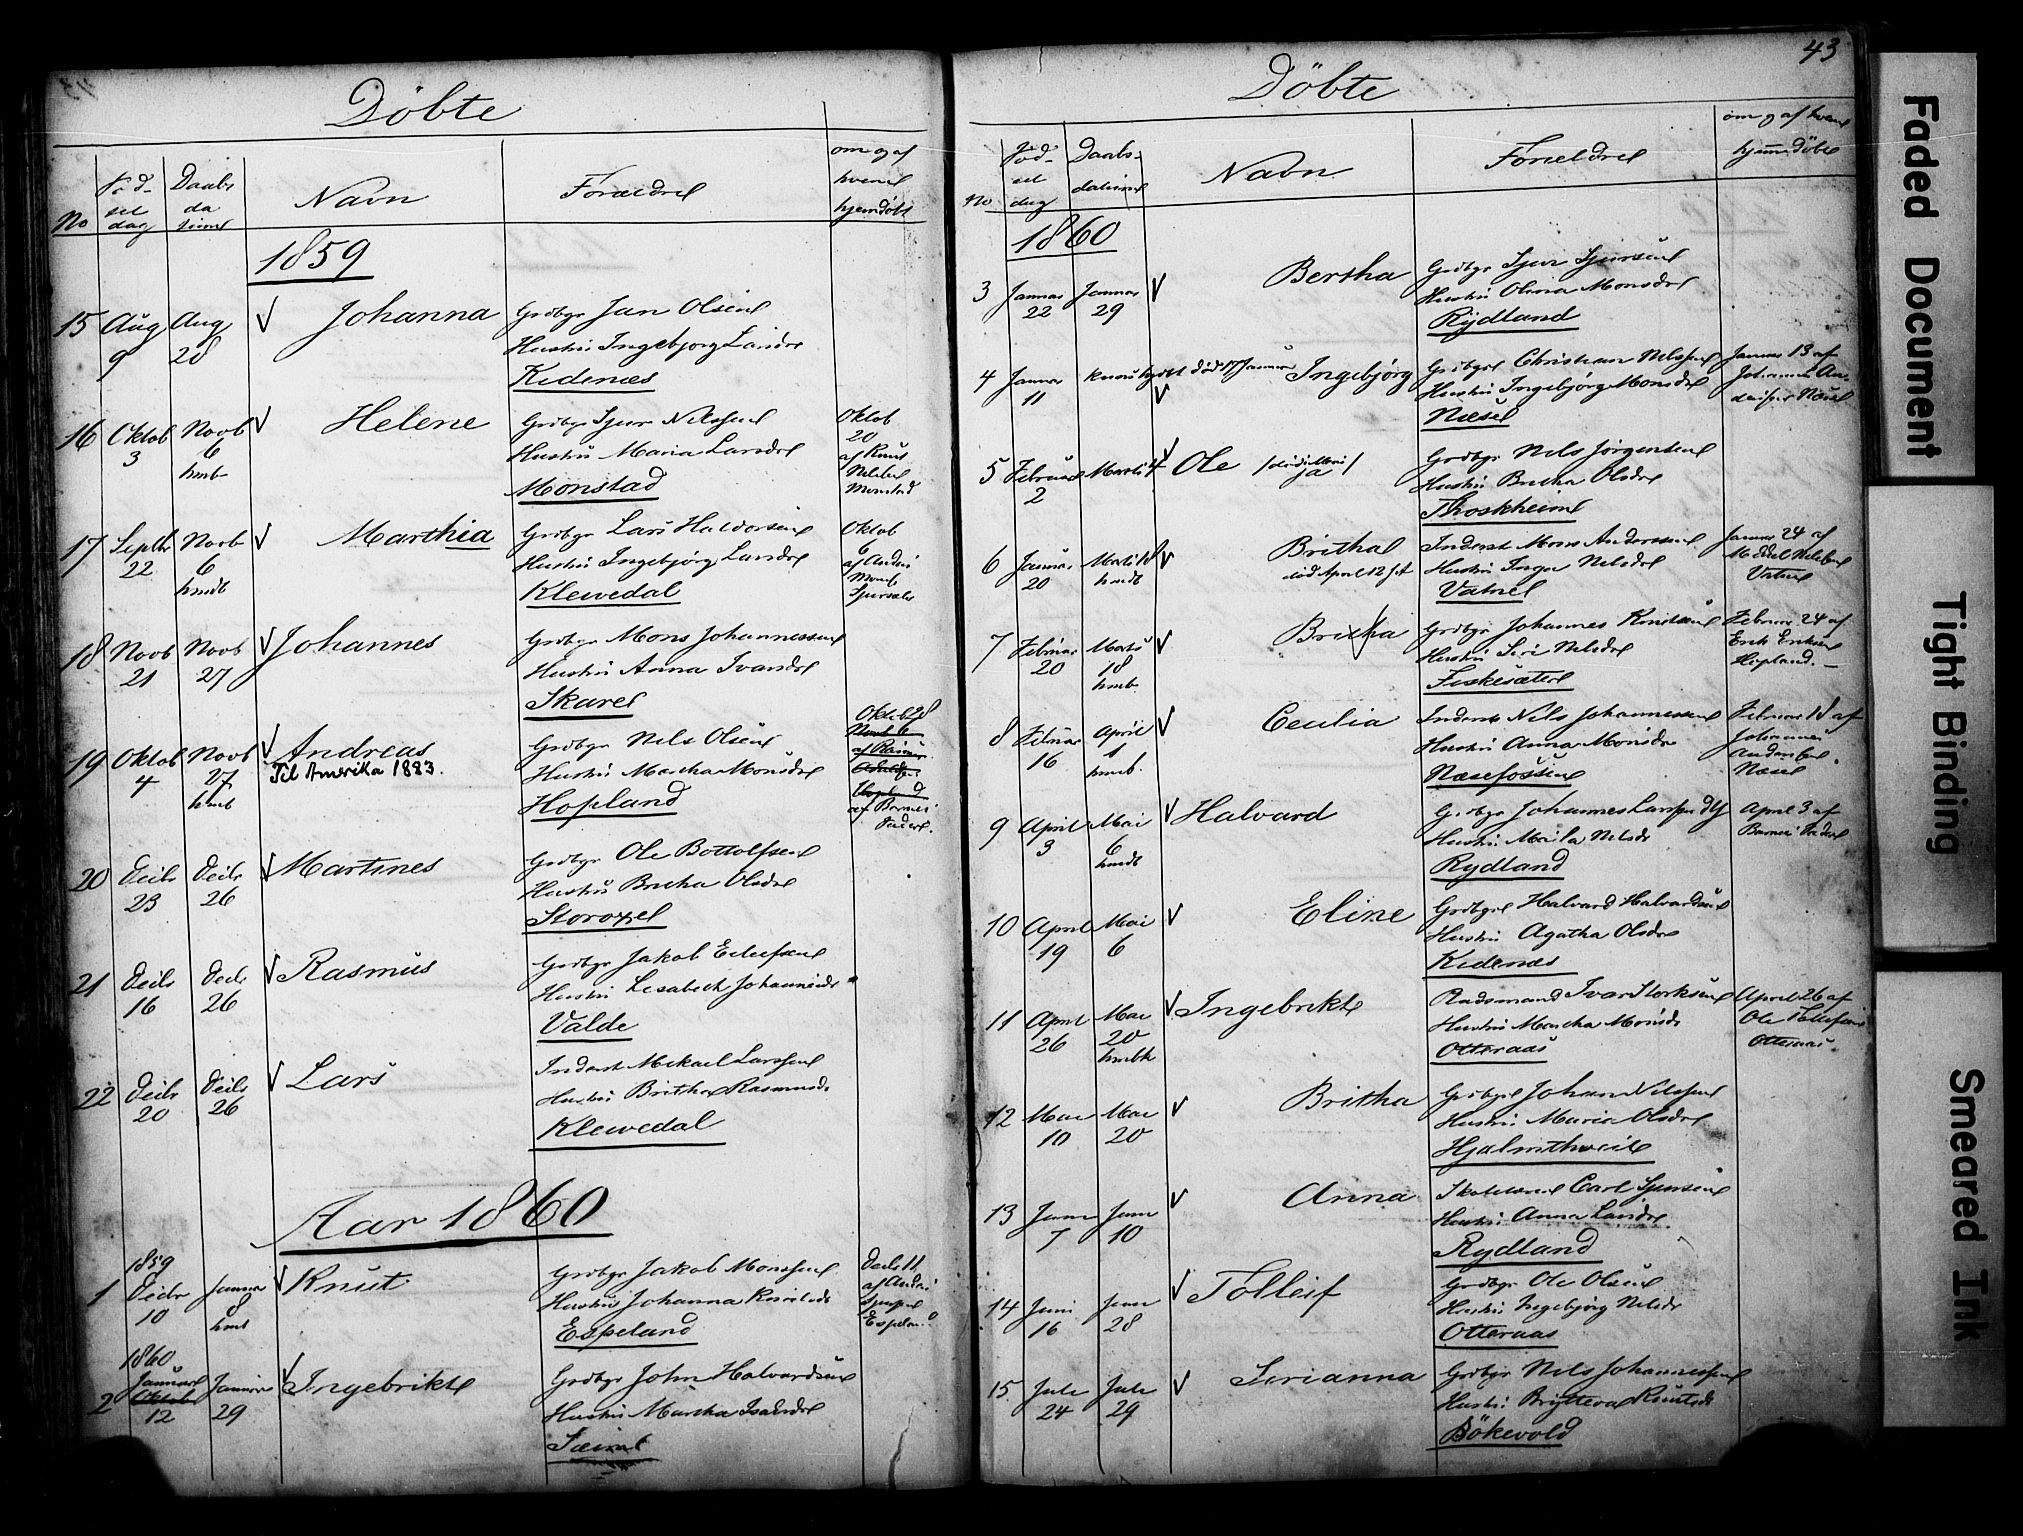 Döbte
No
Föd-
sel
dag
Daabs
da
Navn
Forældre
om og af
hvem
hjemdöbt
1859
15 Aug 9 Aug 28 Johanna Grdbgr Jan Olsen
Hustru Ingebjorg Larsdr
Kidenæs
16 Oktob 3 Novb 6 hmb Helene Grdbgr Sjur Nilssen
Hustru Maria Larsdr
Monstad
Oktob
20
af Knut
Monstad
17 Septbr 22 Novb 6 hmdt Marthia Grdbgr Lars Haldorsen
Hustru Ingebjörg Larsdr
Klewedal
Oktob
6
af Andrs
Mons
18 Novb 21 Novb 27 Johannes Grdbgr Mons Johannessen
Hustru Anna Ivarsdr
Skare
19 Oktob 4 Novb 27 hmt Andreas Grdbgr Nils Olsen
Til Amerika 1883.
Hustru Martha Monsdr
Hopland
Oktob 28
af Barnes
Fader.
20 Decbr 23 Decbr 26 Martines Grdbgr Ole Bottolfsen
Hustru Britha Olsdr
Storoxel
21 Decbr 16 Decbr 26 Rasmus Grdbgr Jakob Eilefsen
Hustru Lisabeth Johannesdr
Valde
22 Decbr 20 Decbr 26 Lars Inderst Mikael Larssen
Hustru Britha Rasmusdr
Klewedal
Aar 1860
1859
1 Decbr 10 Januar 8 hmt Knut Grdbgr Jakob Monssen
Hustru Johanna Knutsdr
Espeland
Decbr 11
af Andrs
1860
2 Januar 12 Januar 29 Ingebrikt Grdbgr John Halvardsen
Hustru Martha Isaksdr
Sæim
43
Döbte
No
Föd-
sel
dag
Daabs-
datum
Navn
Forældre
om og af hvem
hjemdöbt
1860
3 Januar 22 Januar 29 Bertha Grdbgr Sjur Sjursen
Hustru Olina Monsdr
Rydland
4 Januar 11 Ingebjörg Grdbgr Christian Nilssen
Hustru Ingebjörg Monsdr
Næse
Januar 13 af
Johannes An-
Næse
5 Februar 2 Marti 4 Ole Grdbgr Nils Jörgensen
Hustru Britha Olsdr
Throskheim
6 Januar 20 Marti 18 hmdt Britha Inderst Mons Anderssen
död April 12
Hustru Inga Nilsdr
Vatne
Januar 24 af
Vatne
7 Februar 20 Marti 18 hmb. Britha Grdbgr Johannes Knutsen
Hustru Siri Nilsdr
Fiskesæter
Februar 24 af
Erik Eriksen
Hopland. –
8 Februar 16 April 1 hmb. Cecilia Inderst Nils Johannessen
Hustru Anna Monsdr
Næsefossen
Februar 18 af
Johannes
Anderssen
Næse
9 April 3 Mai 6 hmdt Halvard Grdbgr Johannes Larssen
Hustru Nilsdr
Rydland
April 3 af
Barnes Fader
10 April 19 Mai 6 Eline Grdbgr Halvard Halvardsen
Hustru Agatha Olsdr
Kidenæs
11 April 26 Mai 20 Ingebrikt Aadsmand Ivar Storksen
Hustru Martha Monsdr
Otteraas
April 26 af
Ole Tollefsen
Otteraas
12 Mai 10 Mai 20 Britha Grdbgr Johan Nilssen
Hustru Maria Olsdr
Hjalmthveit
13 Juni 7 Juni 10 Anna Skolelærer Carl Sjursen
Hustru Anna Larsdr
Rydland
14 Juni 16 Juni 28 Tolleif Grdbgr Ole Olsen
Hustru Ingebjörg Nilsdr
Otteraas
15 Juli 24 Juli 29 Serianna Grdbgr Nils Johannessen
Hustru Bryteva Knutsdr
Bökevold
Faded Document
Tight Binding
Smeared Ink